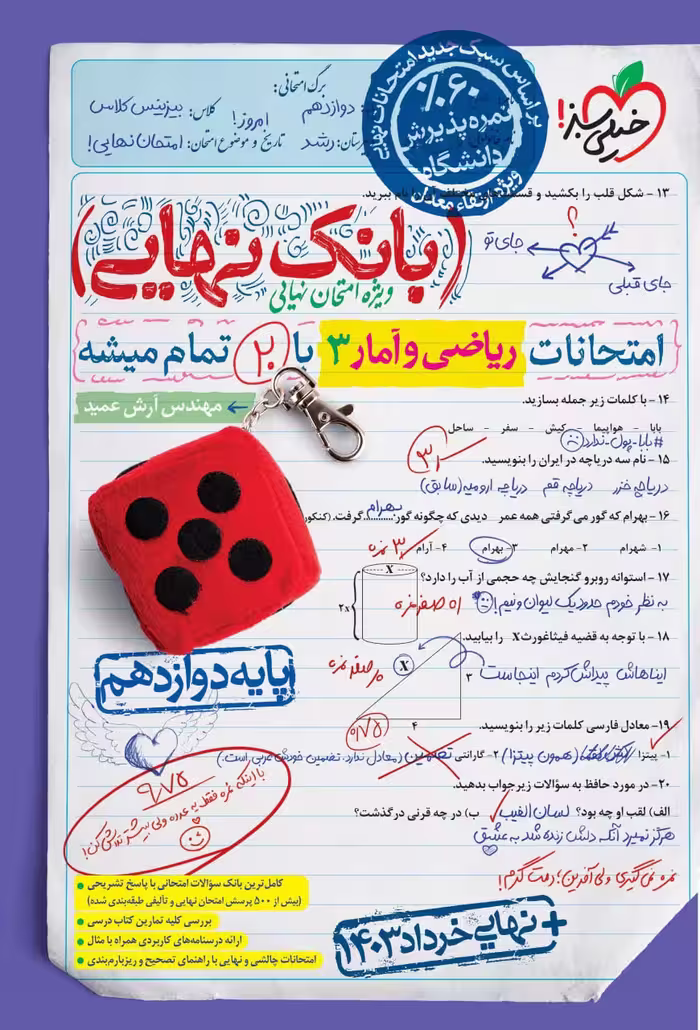 خیلی سبز!
براساس سبک جدید امتحانات نهایی
%۶۰
نمره پذیرش
دانشگاه
ویژه ارتقاء معدل
برگ امتحانی:
دوازدهم
کلاس: بیزینس کلاس
امروز!
رشد
تاریخ و موضوع امتحان: امتحان نهایی!
۱۳ - شکل قلب را بکشید و
نام ببرید.
؟
جای تو
جای قبلی
(بانک نهایی)
ویژه امتحان نهایی
امتحانات ریاضی و آمار ۳ با ۲۰ تمام میشه
مهندس آرش عمید
۱۴ - با کلمات زیر جمله بسازید.
بابا - هواپیما - کیش - سفر - ساحل
#بابا-پول-ندارد
۱۵ - نام سه دریاچه در ایران را بنویسید.
دریاچه خزر دریاچه قم دریاچه ارومیه (سابق)
۱۶ - بهرام که گور می‌گرفتی همه عمر دیدی که چگونه گور بهرام گرفت. (کنکور
۱- شهرام ۲- مهرام ۳- بهرام ۴- آرام
۱۷ - استوانه روبرو گنجایش چه حجمی از آب را دارد؟
X
2X
به نظر خودم حدود یک لیوان و نیم!
۱۸ - با توجه به قضیه فیثاغورث X را بیابید.
ایناهاش پیداش کردم اینجاست
X
۳
۴
۰/۷۵
پایه دوازدهم
۱۹- معادل فارسی کلمات زیر را بنویسید.
۱- پیتزا (همون پیتزا) ۲- گارانتی تضمین (معادل ندارد. تضمین خودش عربی است.)
۲۰- در مورد حافظ به سؤالات زیر جواب بدهید.
الف) لقب او چه بود؟ لسان الغیب ب) در چه قرنی درگذشت؟
هرگز نمیرد آنکه دلش زنده شد به عشق
۹/۷۵
با اینکه نمره فقط یه عدده ولی بیشتر تلاش کن!
نمره نمی‌گیری ولی آفرین! دمت گرم!
کامل‌ترین بانک سؤالات امتحانی با پاسخ تشریحی
(بیش از ۵۰۰ پرسش امتحان نهایی و تألیفی طبقه‌بندی شده)
بررسی کلیه تمارین کتاب درسی
ارائه درسنامه‌های کاربردی همراه با مثال
امتحانات چالشی و نهایی با راهنمای تصحیح و ریزبارم‌بندی
+ نهایی خرداد ۱۴۰۳